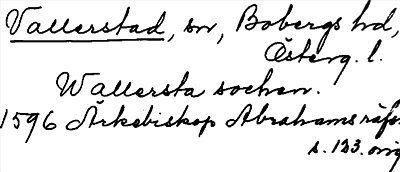 Vallerstad, sn, Bobergs hd,
Österg. l.
Wallersta sochen.
1596 Ärkebiskop Abrahams räfst
s. 123. orig